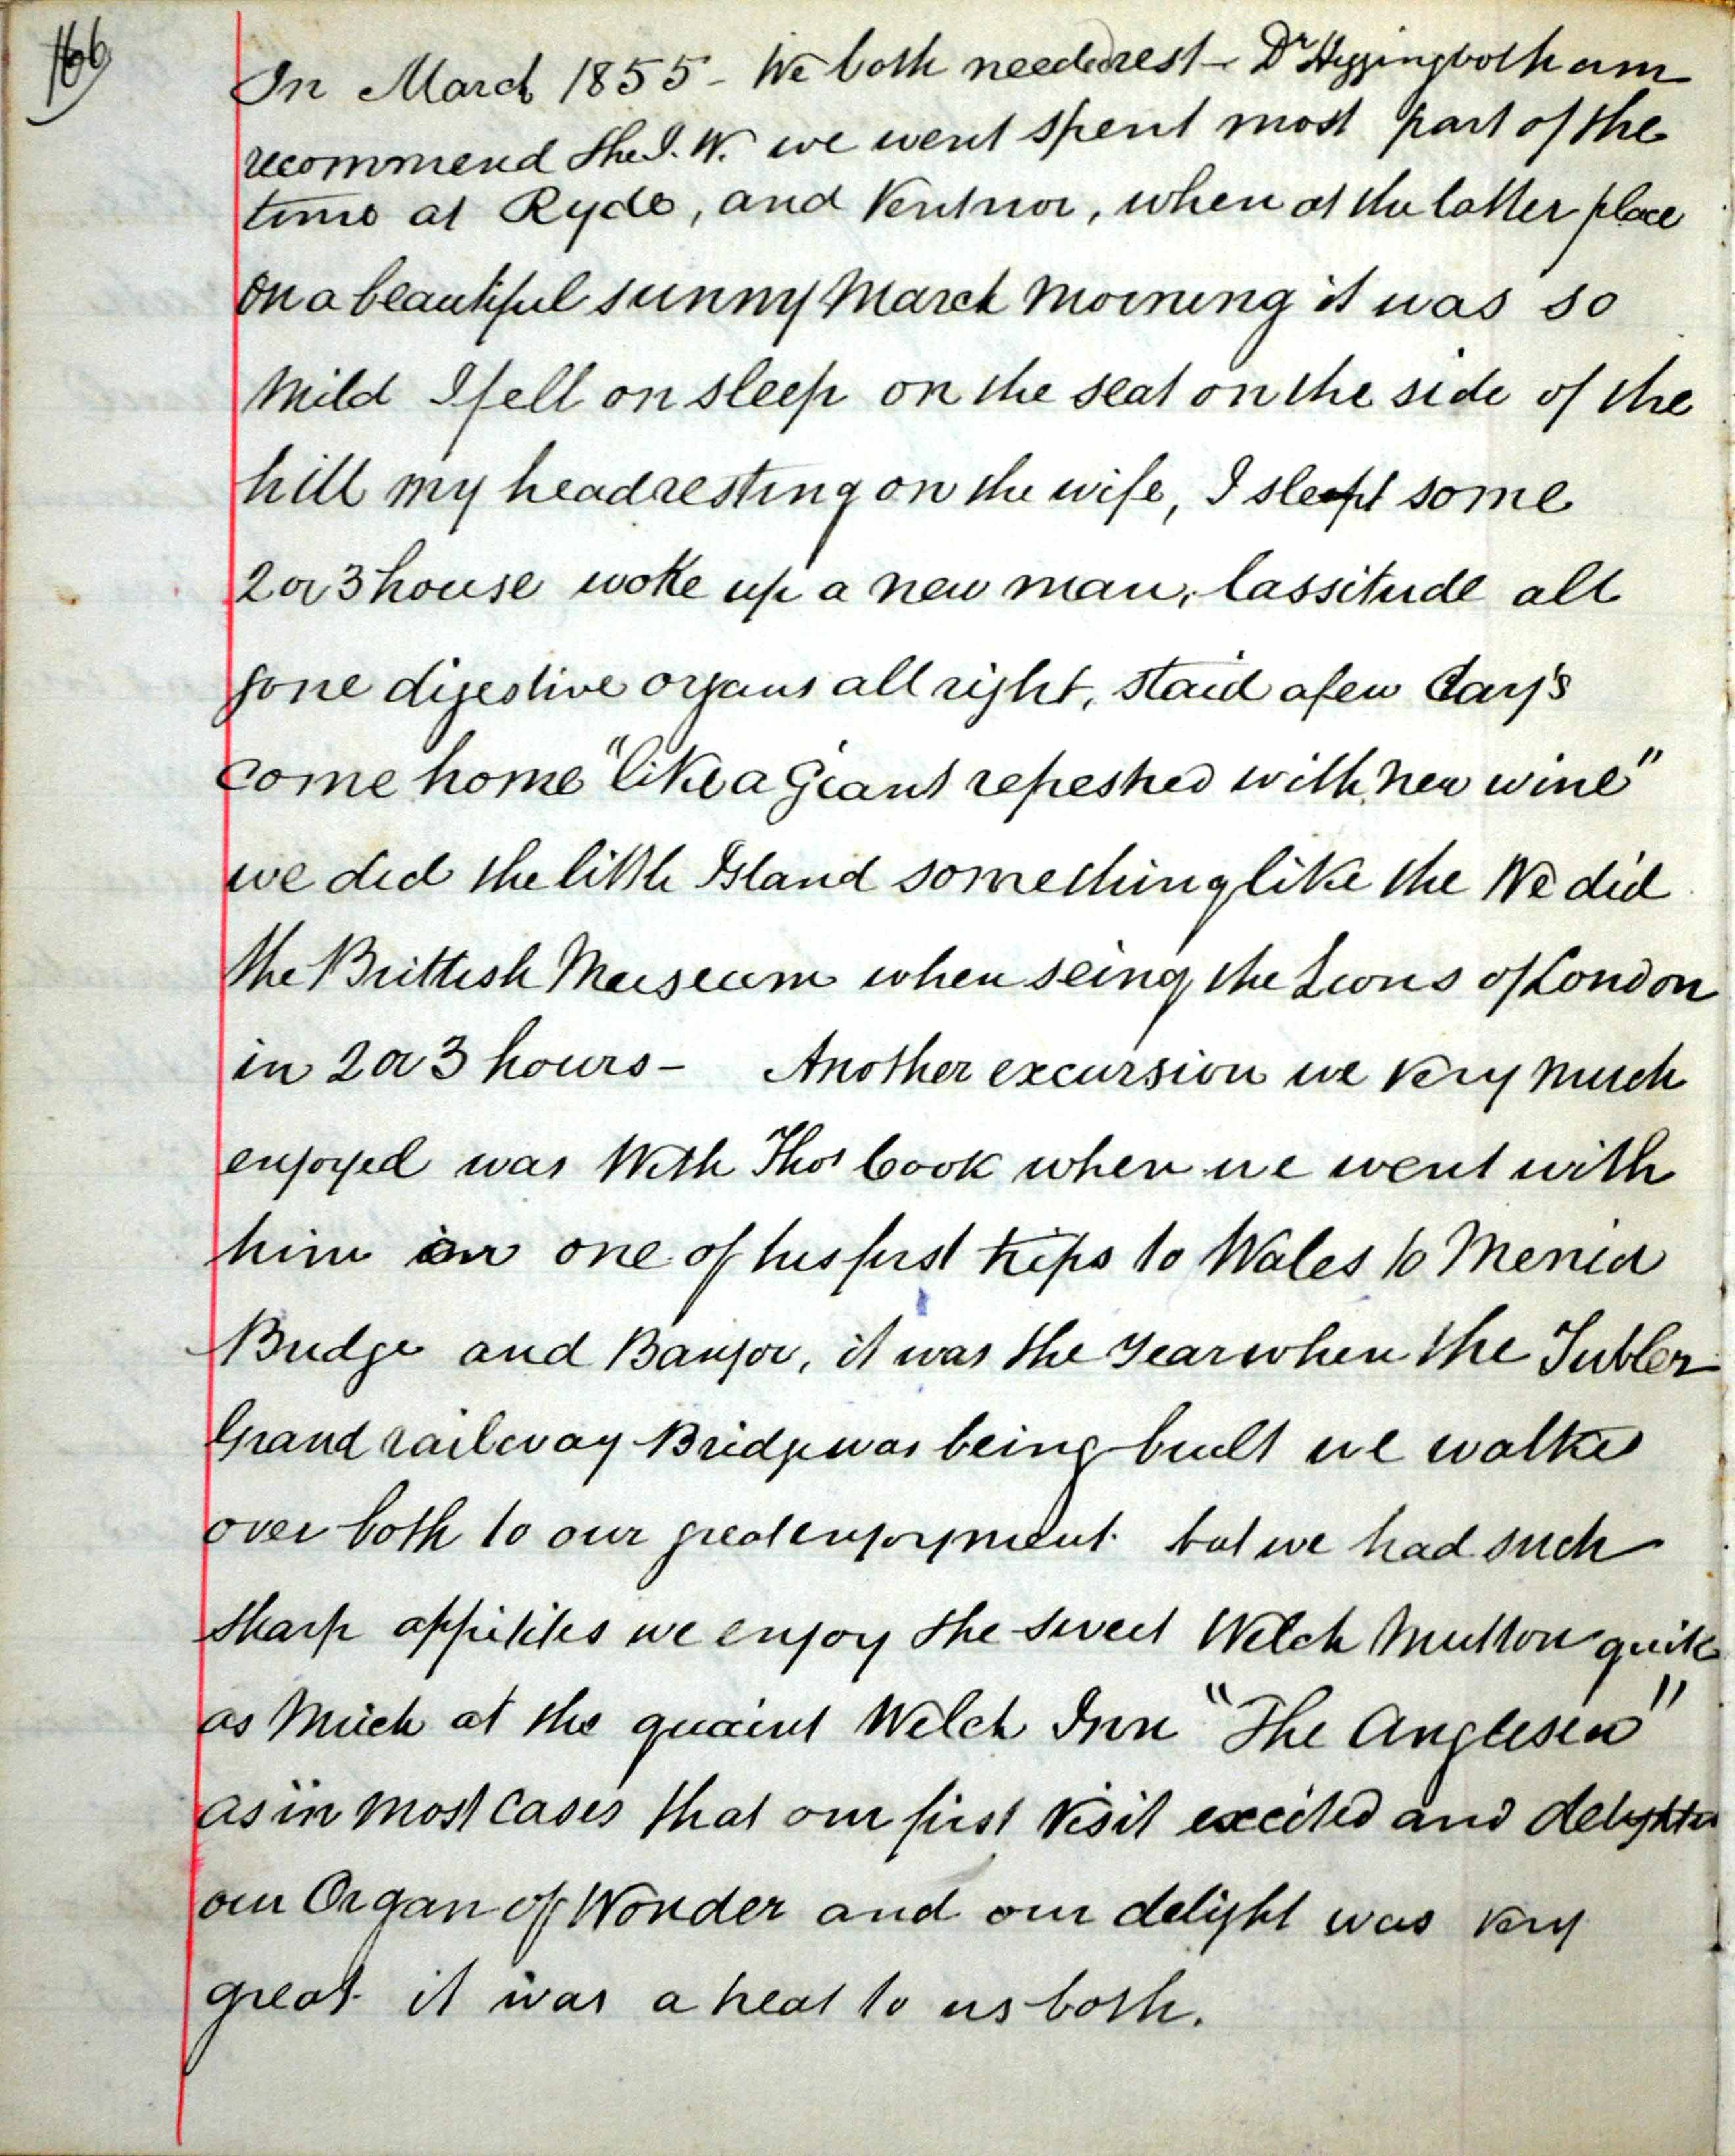 166
In March 1855 - We both need rest - Dr Higginbotham
recommend The I. W. we went spent most part of the
time at Ryde, and Ventnor, when at the latter place
on a beautiful sunny March morning it was so
mild I fell on sleep on the seat on the side of the
hill my head resting on the wife, I slept some
2 or 3 house woke up a new man, lassitude all
gone digestive organs all right, staid a few days
come home "like a Giant refreshed with new wine"
we did the little Island something like the We did
the Brittish Museum when seing the Lions of London
in 2 or 3 hours - Another excursion we very much
enjoyed was With Thos Cook when we went with
him on one of his first trips to Wales to Menia
Bridge and Bangor, it was the year when the Tubler
Grand railway Bridge was being built we walked
over both to our great enjoyment but we had such
sharp appitites we enjoy the sweet Welch Mutton quite
as much at the quaint Welch Inn "The Anglesea"
as in most cases that our first visit excited and delighted
our Organ of Wonder and our delight was very
great it was a treat to us both.